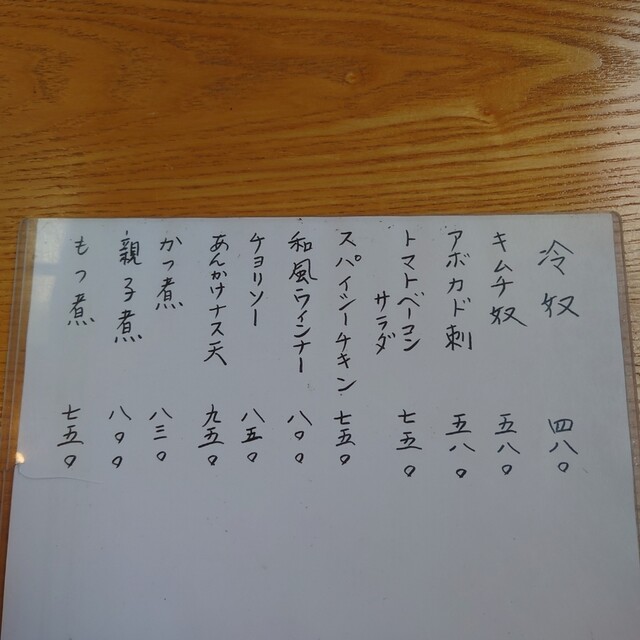 冷奴 四八〇
キムチ奴 五八〇
アボカド刺 五八〇
トマトベーコンサラダ 七五〇
スパイシーチキン 七五〇
和風ウインナー 八〇〇
チョリソー 八五〇
あんかけナス天 九五〇
かつ煮 八三〇
親子煮 八〇〇
もつ煮 七五〇